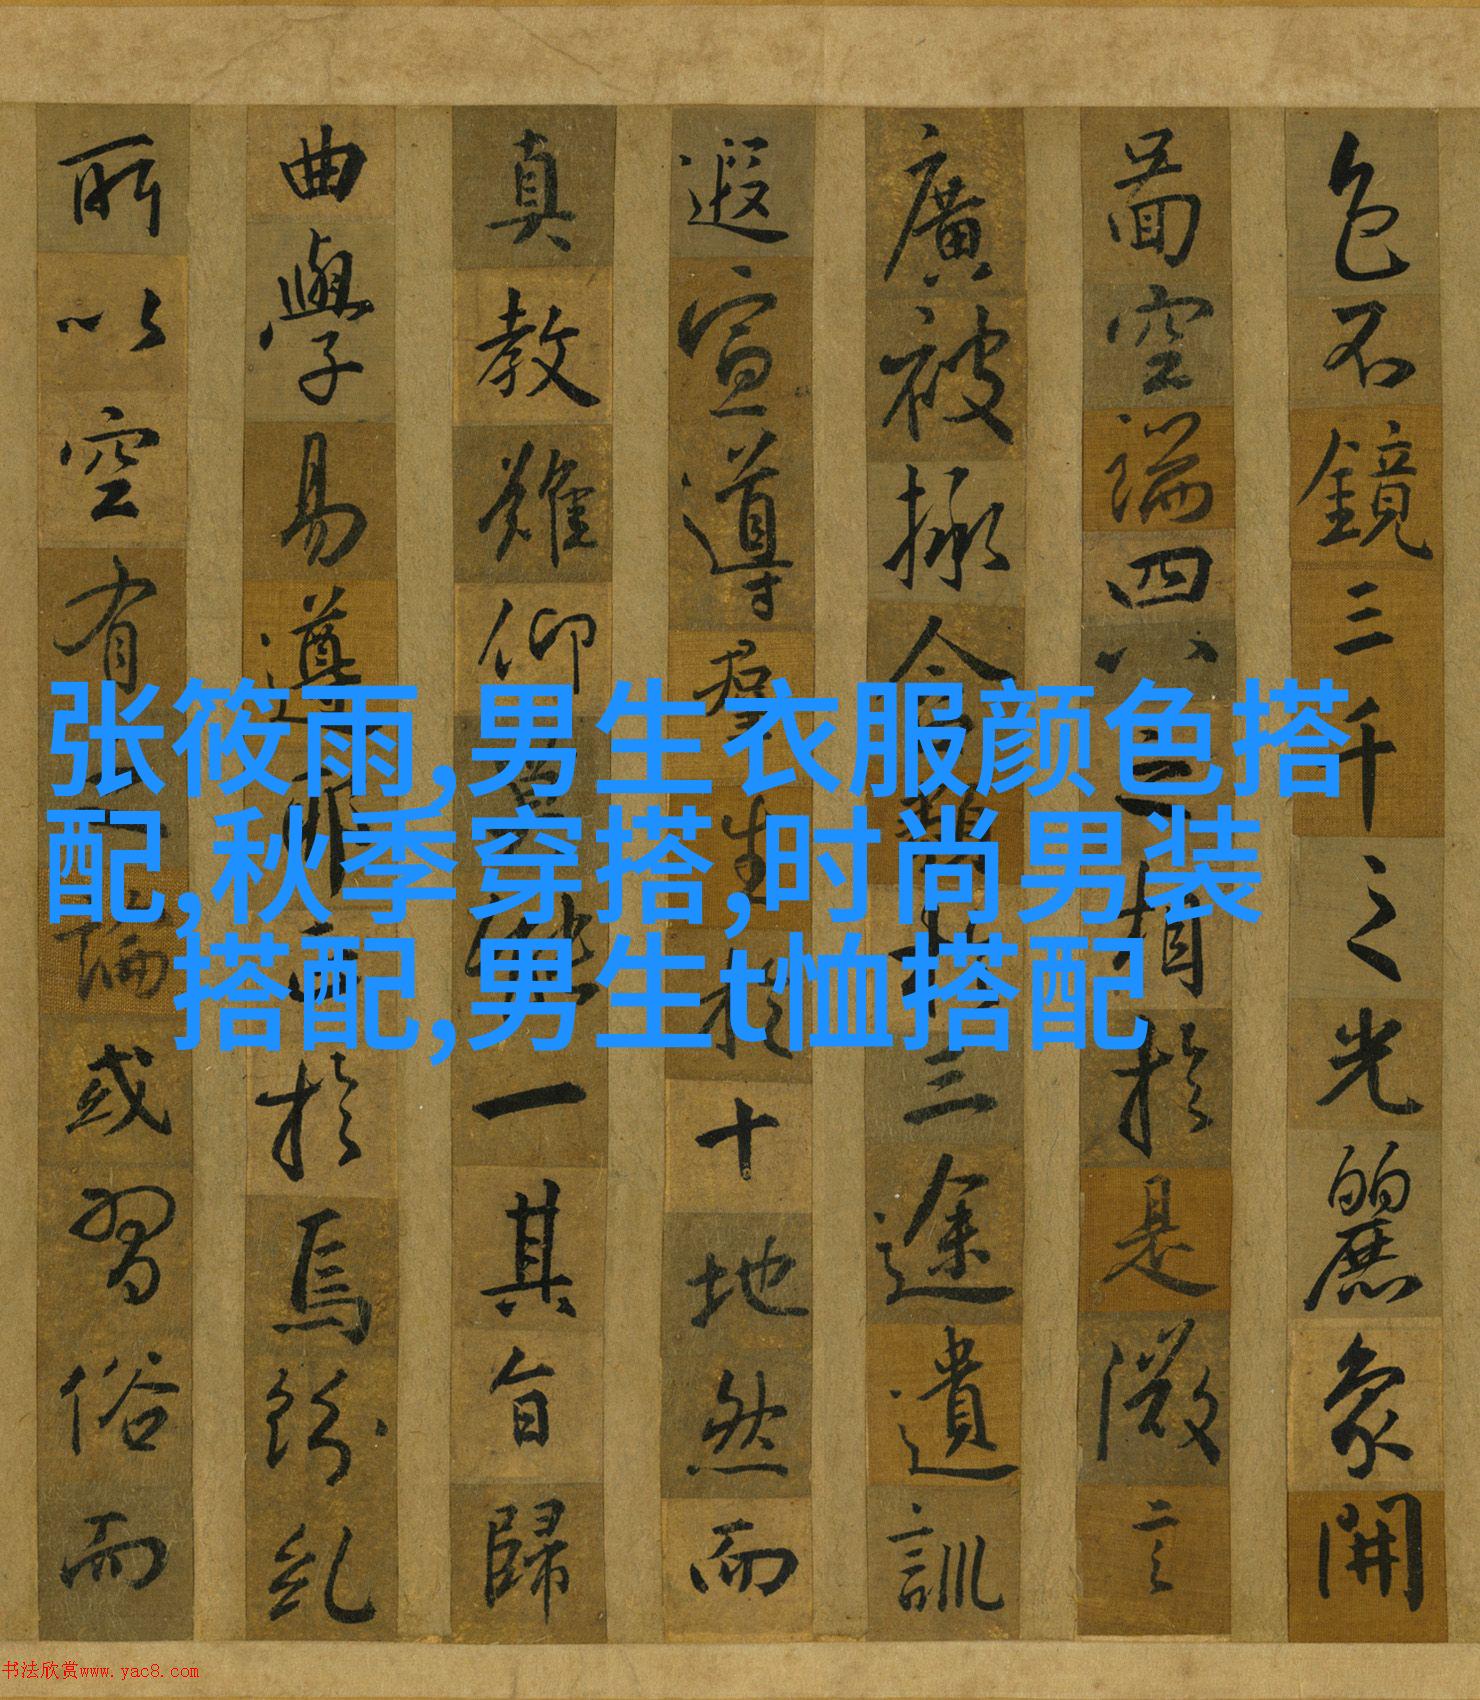 色不鏡三千之光麗象開
啚空端四八之相於是微言
廣被拯含類於三途遺訓
遐宣導群生於十地然而
真教難仰莫能一其旨歸
曲學易遵邪正於焉紛糺
所以空有之論或習俗而
张筱雨,男生衣服颜色搭
配,秋季穿搭,时尚男装
搭配,男生t恤搭配
书法欣赏www.yac8.com